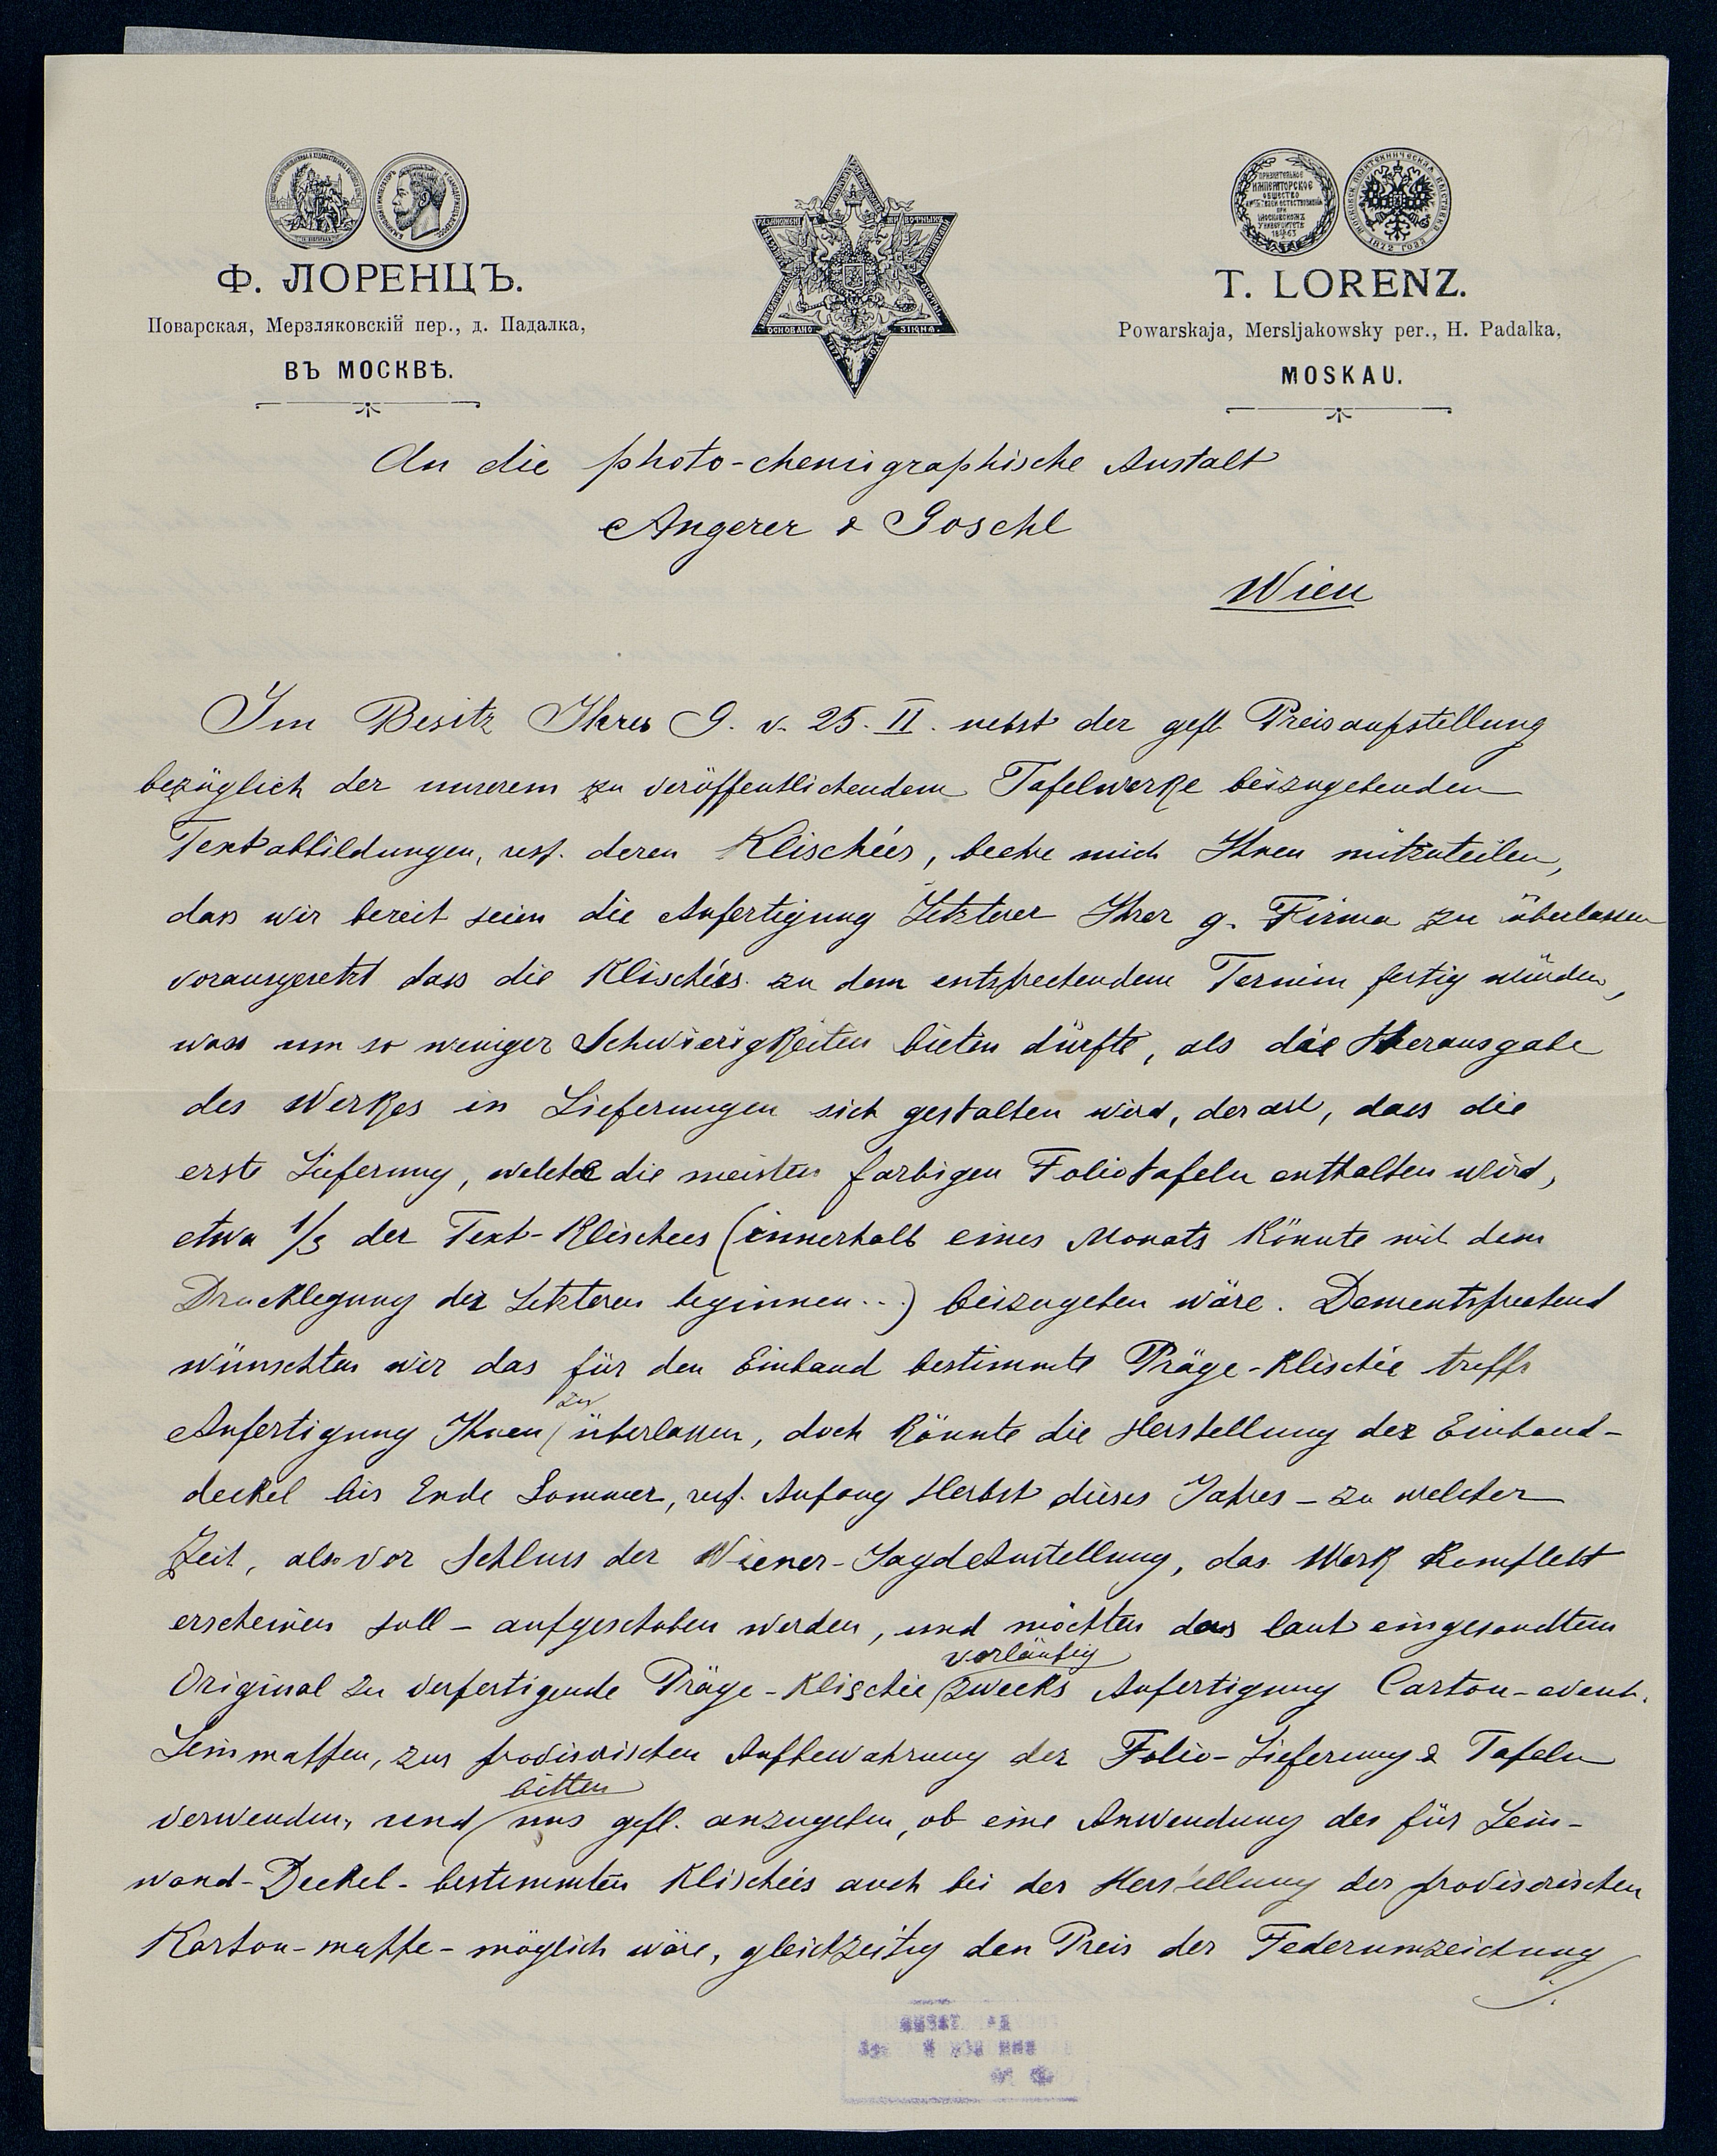 Ф. ЛОРЕНЦЪ.
Поварская, Мерзляковскій пер., д. Падалка,
ВЪ МОСКВѢ.
ОСНОВАНО
ПРИЗНАТЕЛЬНОЕ
ИМПЕРАТОРСКОЕ
ОБЩЕСТВО
ПРИ
МОСКОВСКОМЪ
УНИВЕРСИТЕТѢ
1863
T. LORENZ.
Powarskaja, Mersljakowsky per., H. Padalka,
MOSKAU.
An die photo-chemigraphische Anstalt
Angerer & Goschl
Wien
Im Besitz Ihres G. v. 25. II. nebst der gefl. Preisaufstellung
bezüglich der unserem zu veröffentlichendem Tafelwerke beizugebenden
Textabbildungen, resp. deren Klischées, beehre mich Ihnen mitzuteilen,
dass wir bereit seien die Anfertigung Letzterer Ihrer g. Firma zu überlassen
vorausgesetzt dass die Klischées zu dem entsprechendem Termin fertig würden,
was um so weniger Schwierigkeiten bieten dürfte, als die Herausgabe
des Werkes in Lieferungen sich gestalten wird, derart, dass die
erste Lieferung, welche die meisten farbigen Foliotafeln enthalten wird,
etwa 1/3 der Text-Klischees (innerhalb eines Monats könnte mit dem
Drucklegung der Letzteren beginnen...) beizugeben wäre. Dementsprechend
wünschten wir das für den Einband bestimmte Präge-Klischée treffs
Anfertigung Ihnen zu überlassen, doch könnte die Herstellung der Einband-
deckel bis Ende Sommer, resp. Anfang Herbst dieses Jahres - zu welcher
Zeit, also vor Schluss der Wiener-Jagdausstellung, das Werk komplett
erscheinen soll - aufgeschoben werden, und möchten das laut eingesandtem
Original zu verfertigende Präge-Klischée vorläufig zwecks Anfertigung Carton-event.
Leinmappen, zur provisorischen Aufbewahrung der Folio-Lieferung & Tafeln
verwenden, und bitten uns gefl. anzugeben, ob eine Anwendung des für Lein-
wand-Deckel- bestimmten Klischées auch bei der Herstellung der provisorischen
Karton-mappe- möglich wäre, gleichzeitig den Preis der Federumzeichnung